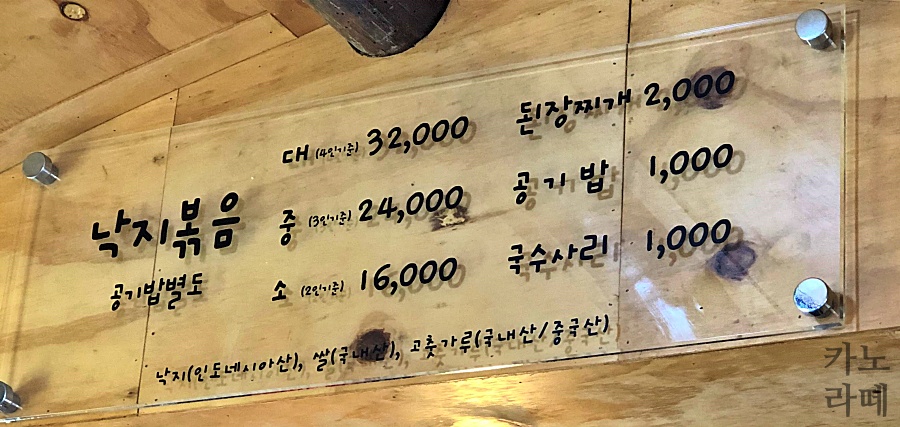 낙지볶음
공기밥별도
대 (4인기준) 32,000
중 (3인기준) 24,000
소 (2인기준) 16,000
된장찌개 2,000
공기밥 1,000
국수사리 1,000
낙지(인도네시아산), 쌀(국내산), 고춧가루(국내산/중국산)
카노
라떼